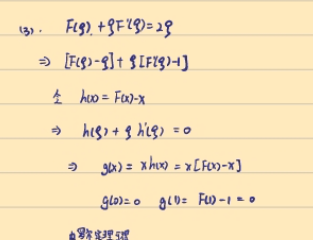 (3). F(ξ) + ξF'(ξ) = 2ξ
⇒ [F(ξ)-ξ] + ξ[F'(ξ)-1]
令 h(x) = F(x)-x
⇒ h(ξ) + ξ h'(ξ) = 0
⇒ g(x) = xh(x) = x[F(x)-x]
g(0)=0 g(1)= F(1)-1 = 0
由罗尔定理